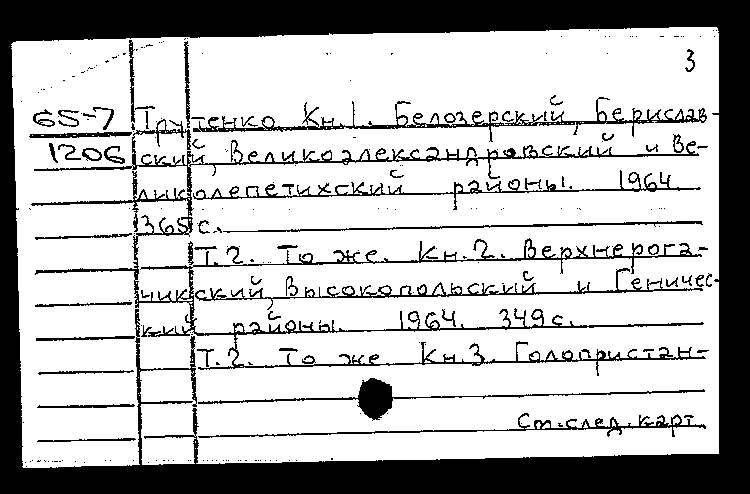 3
65-7 Трутенко Кн.1. Белозерский, Берислав-
1206 ский, Великоалександровский и Ве-
ликолепетихский районы. 1964.
365 с.
Т.2. То же. Кн.2. Верхнерога-
чикский, Высокопольский и Геничес-
кий районы. 1964. 349 с.
Т.2. То же Кн.3. Голопристан-
См. след. карт.